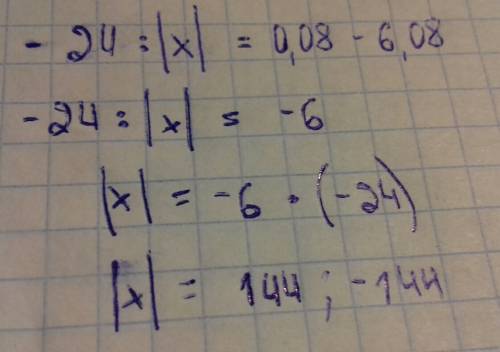 - 24 : |x| = 0,08 - 6,08
-24 : |x| = -6
|x| = -6 · (-24)
|x| = 144 ; -144